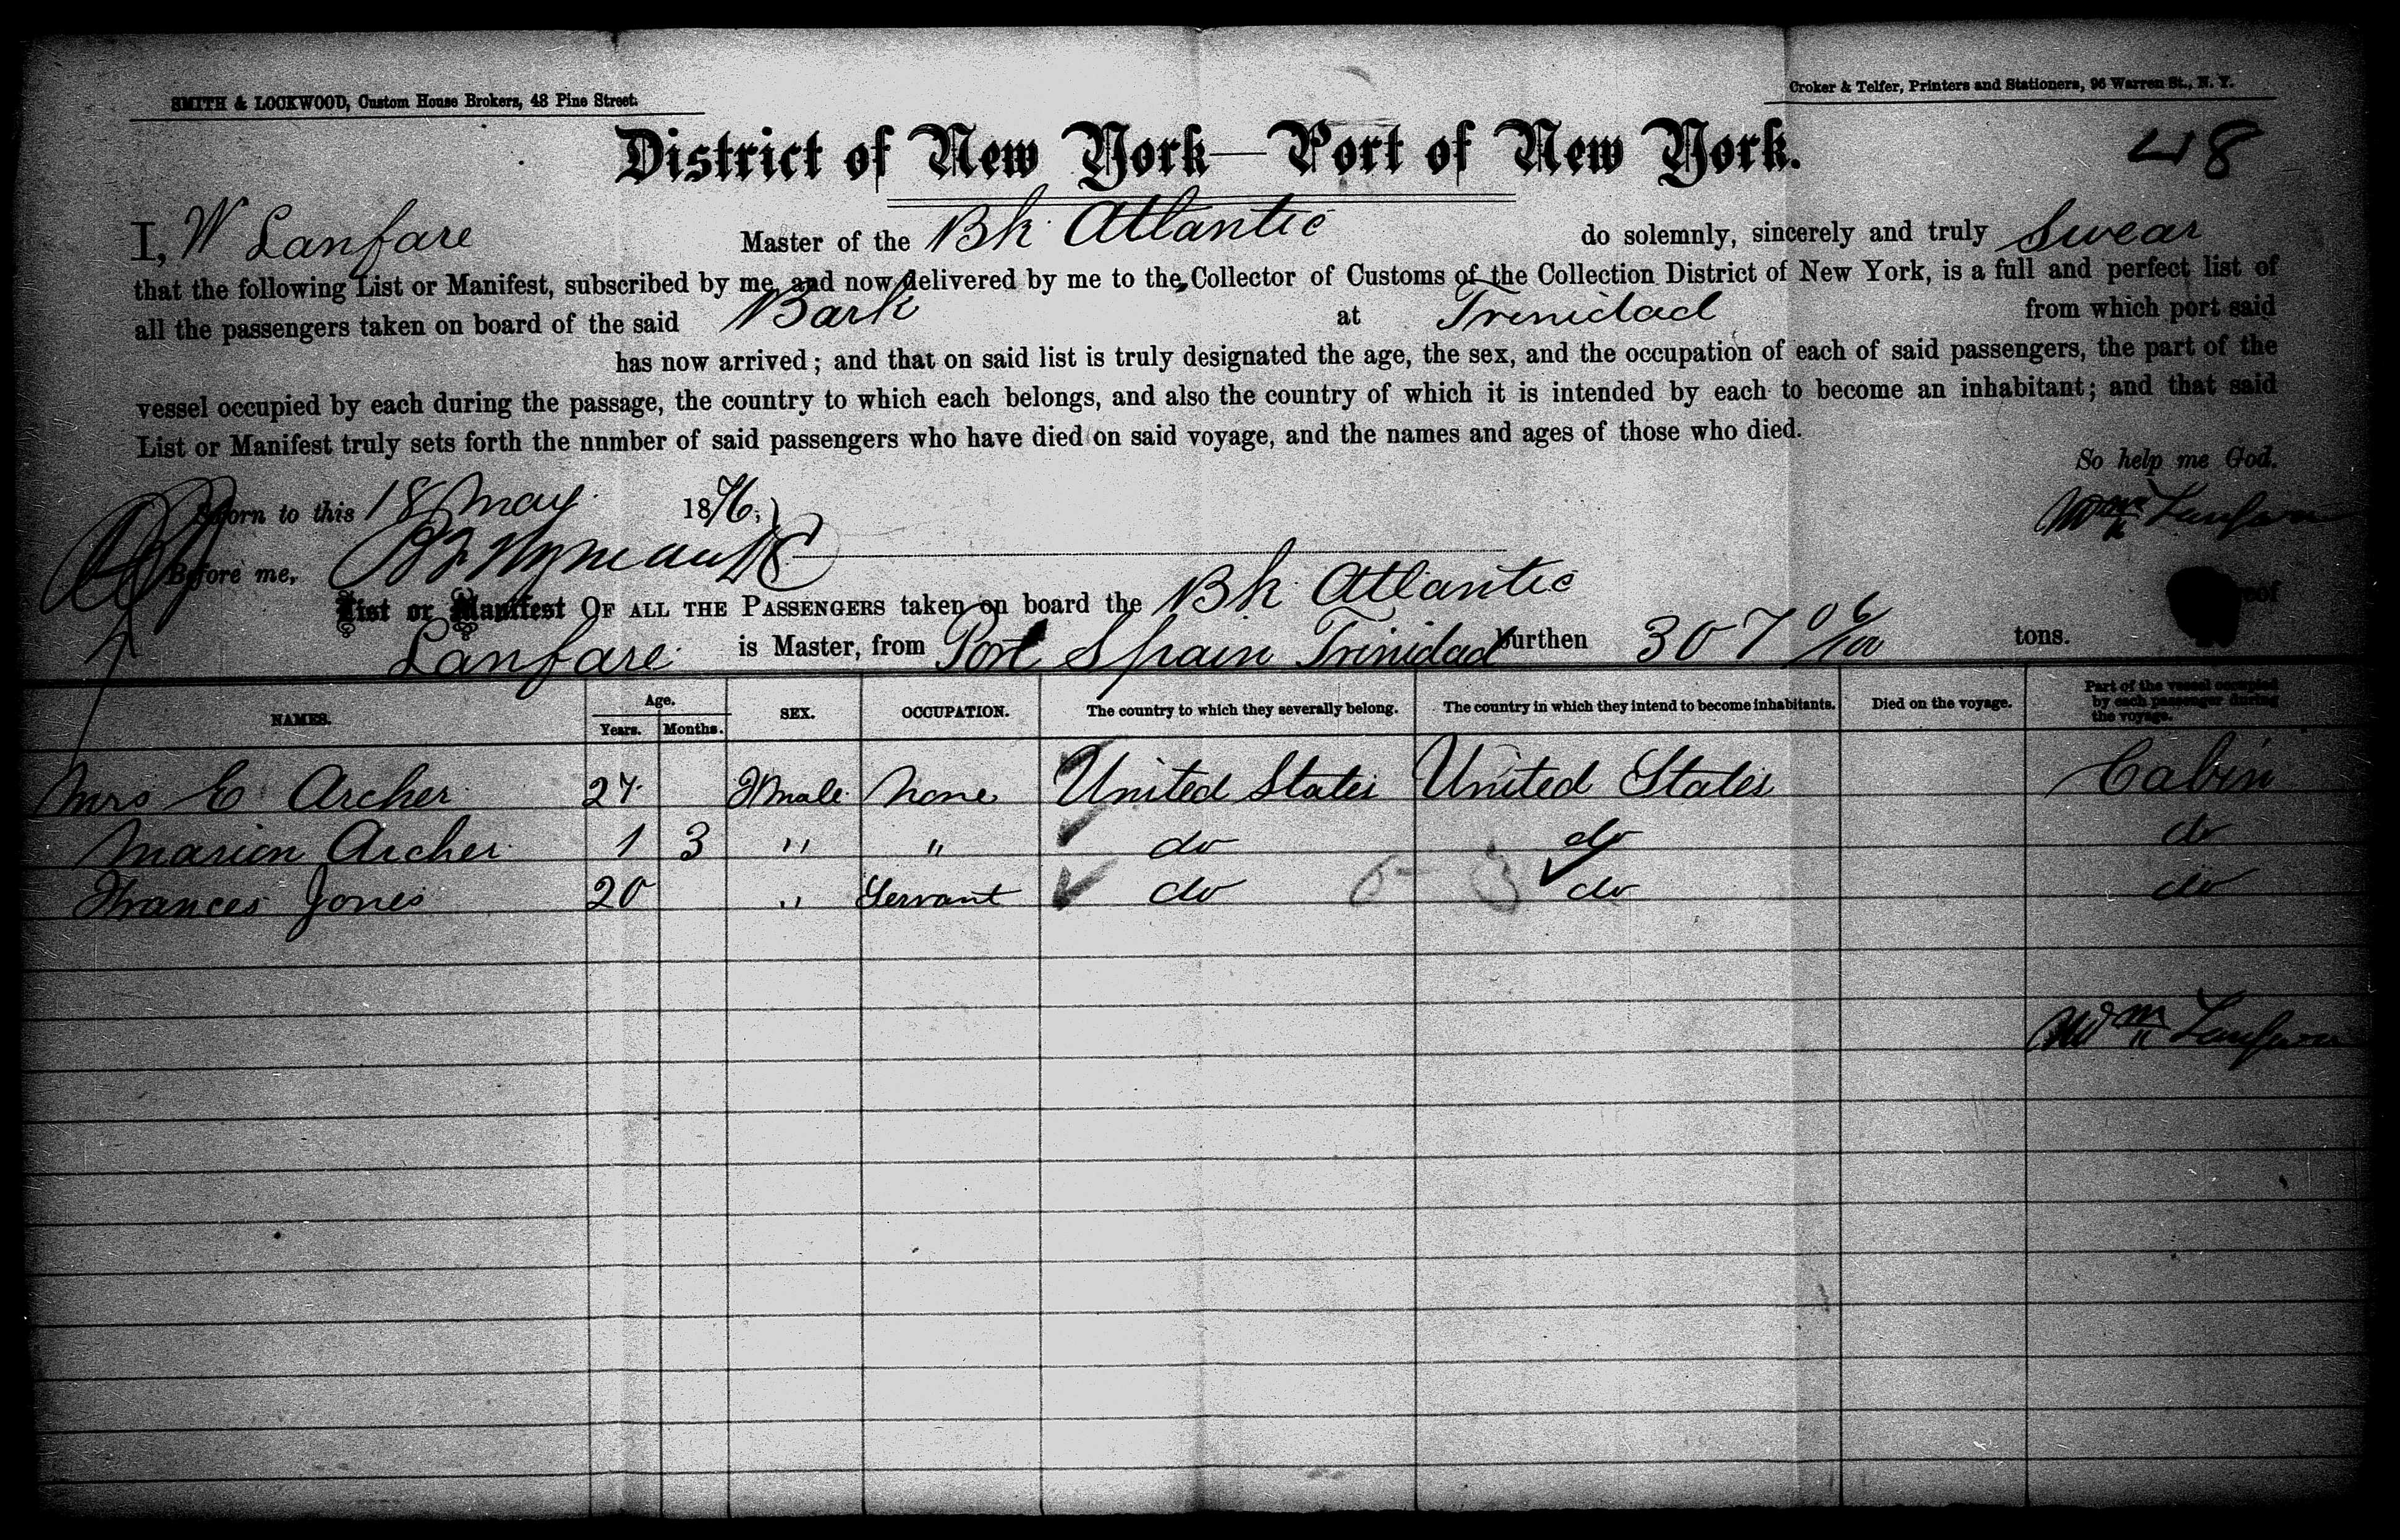 SMITH & LOCKWOOD, Custom House Brokers, 48 Pine Street.
Croker & Telfer, Printers and Stationers, 96 Warren St., N. Y.
District of New York—Port of New York.
48
I, W Lanfare Master of the Bk Atlantic do solemnly, sincerely and truly Swear
that the following List or Manifest, subscribed by me, and now delivered by me to the Collector of Customs of the Collection District of New York, is a full and perfect list of
all the passengers taken on board of the said Bark at Trinidad from which port said
has now arrived; and that on said list is truly designated the age, the sex, and the occupation of each of said passengers, the part of the
vessel occupied by each during the passage, the country to which each belongs, and also the country of which it is intended by each to become an inhabitant; and that said
List or Manifest truly sets forth the nnmber of said passengers who have died on said voyage, and the names and ages of those who died.
So help me God.
Sworn to this 18 May 1876,
Wm Lanfare
Before me,
List or Manifest OF ALL THE PASSENGERS taken on board the Bk Atlantic
Lanfare is Master, from Port Spain Trinidad burthen 307 06/100 tons.
NAMES. Age. Years. Months. SEX. OCCUPATION. The country to which they severally belong. The country in which they intend to become inhabitants. Died on the voyage. Part of the vessel occupied by each passenger during the voyage.
Mrs E Archer 27 Fmale None United States United States Cabin
Marion Archer 1 3 " " do do do
Frances Jones 20 " Servant do do do
Wm Lanfare